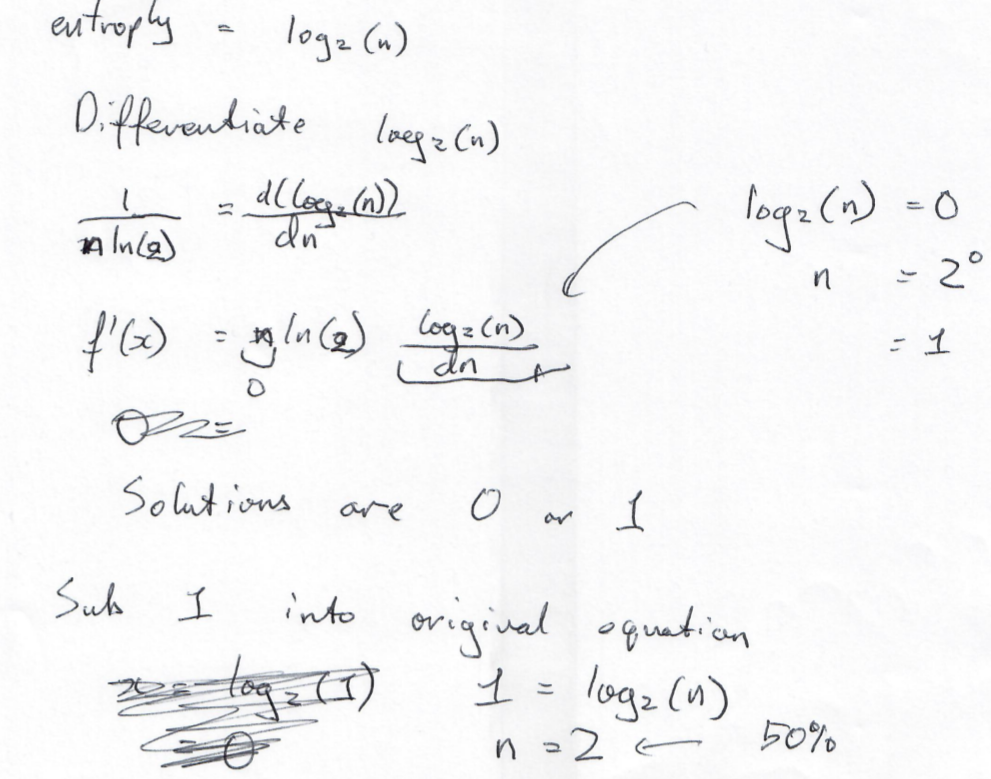 entrophy = log₂(n)
Differentiate log₂(n)
1/(n ln(2)) = d(log₂(n))/dn
log₂(n) = 0
n = 2⁰
= 1
f'(x) = n ln(2) log₂(n)/dn
0
0 =
Solutions are 0 or 1
Sub 1 into original equation
x = log₂(1)
= 0
1 = log₂(n)
n = 2 ← 50%